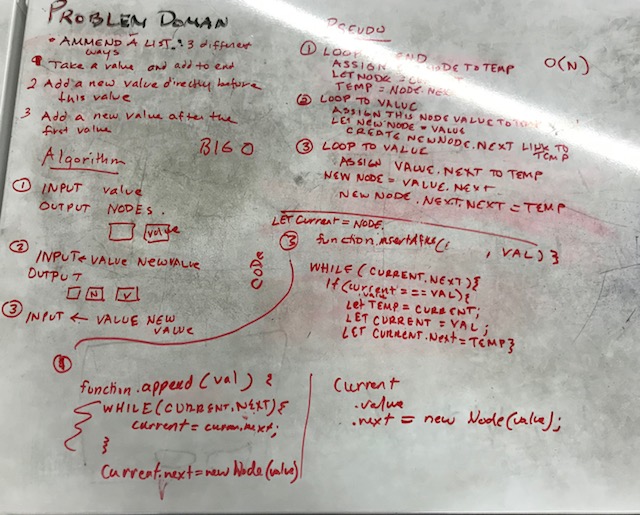 PROBLEM DOMAN
• AMMEND A LIST. : 3 different
ways
1 Take a value and add to end
2 Add a new value directly before
this value
3 Add a new value after the
first value
BIG O
Algorithm
① INPUT value
OUTPUT NODES.
value
② INPUT ← VALUE NEWVALUE
OUTPUT
N V
③ INPUT ← VALUE NEW
VALUE
PSEUDO
① LOOP END
ASSIGN NODE TO TEMP
LET NODE =
TEMP = NODE.NEXT
O(N)
② LOOP TO VALUE
ASSIGN THIS NODE VALUE TO
LET NEW NODE = VALUE
CREATE NEWNODE.NEXT LINK TO
TEMP
③ LOOP TO VALUE
ASSIGN VALUE.NEXT TO TEMP
NEW NODE = VALUE.NEXT
NEW NODE.NEXT.NEXT = TEMP
CODE
LET Current = NODE
③ function.insertAfter( , VAL) }
WHILE (CURRENT.NEXT){
if (current.value === VAL){
Let TEMP = CURRENT;
LET CURRENT = VAL;
LET CURRENT.Next = TEMP}
①
function.append(val) {
WHILE(CURRENT.NEXT){
current = curren.next;
}
Current.next = new Node(value)
Current
.value
.next = new Node(value);